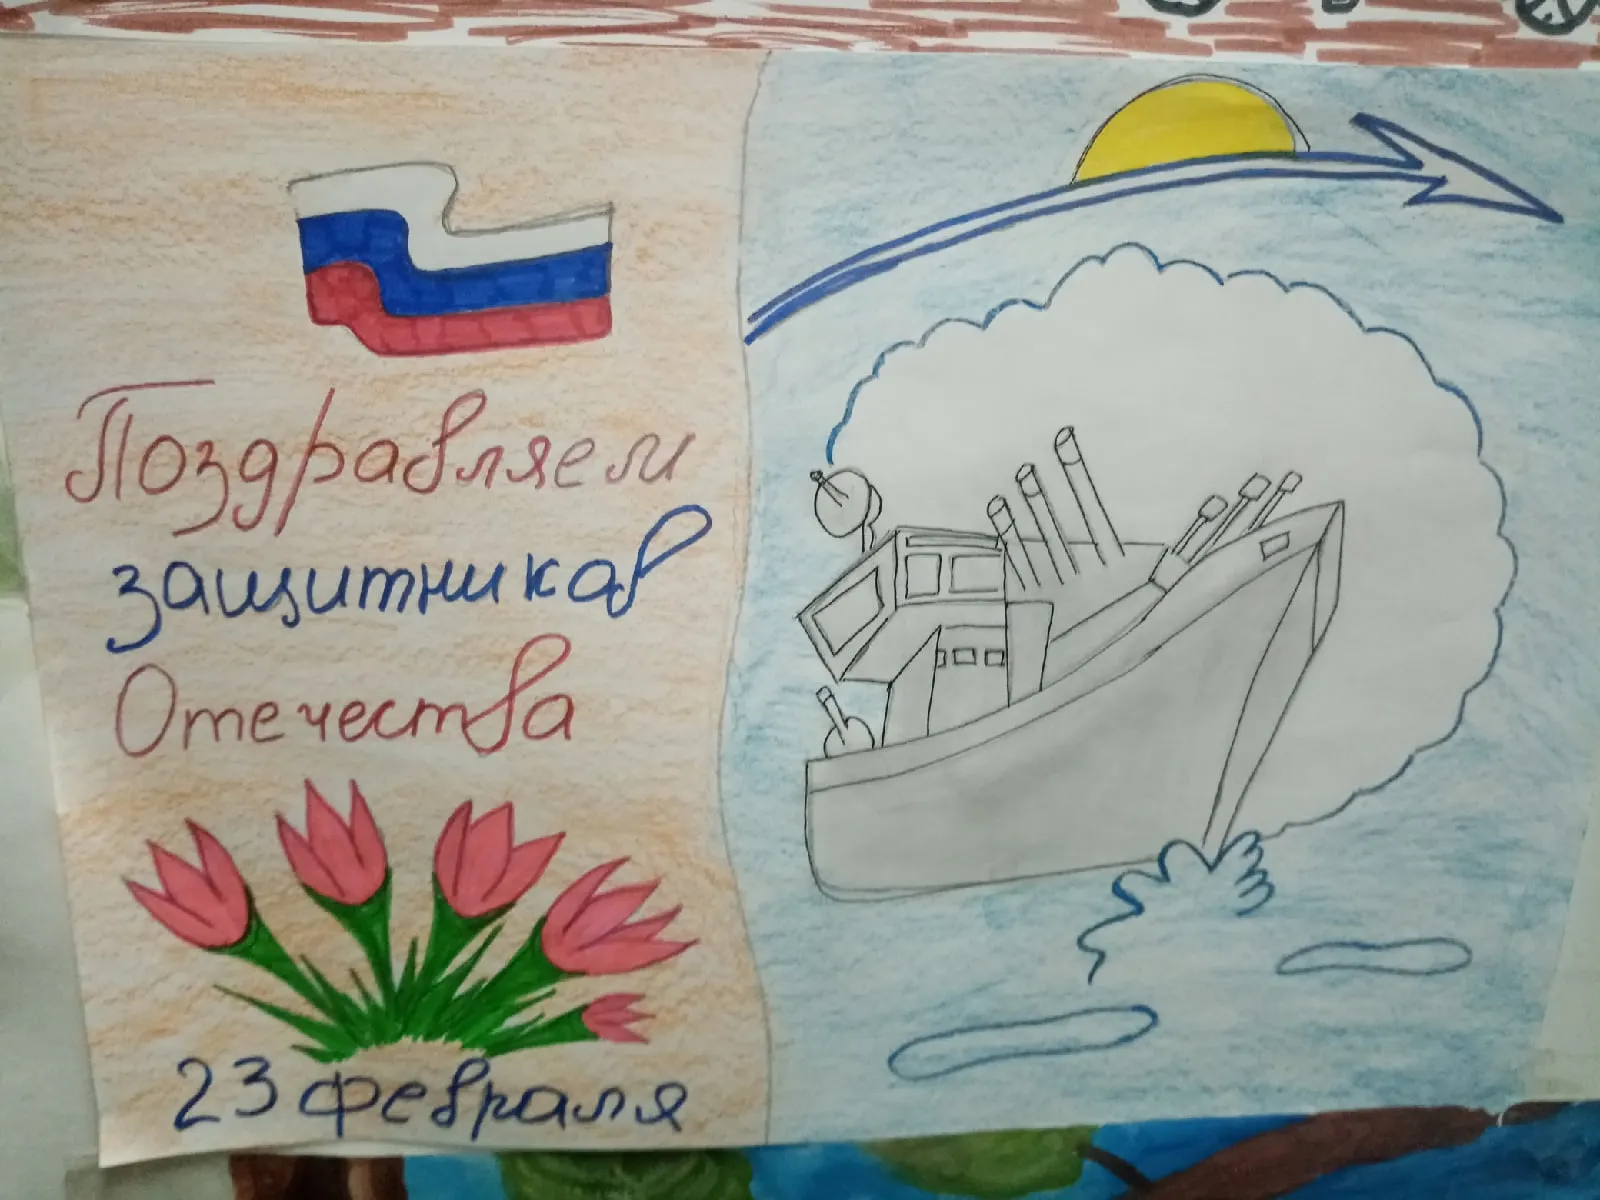 Поздравляем
защитников
Отечества
23 февраля